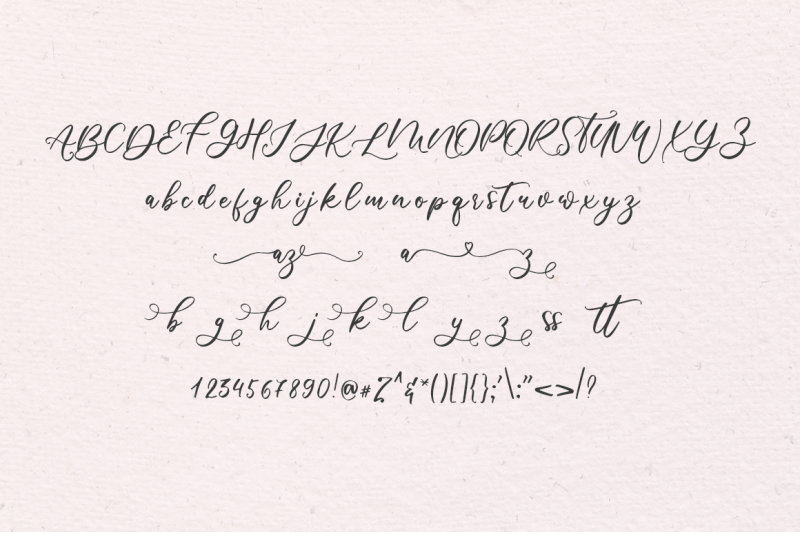 ABCDEFGHIJKLMNOPQRSTUVWXYZ
abcdefghijklmnopqrstuvwxyz
az a z
b g h j k l y z ss tt
1234567890!@#%^&*()[]{};'\:"<>/?